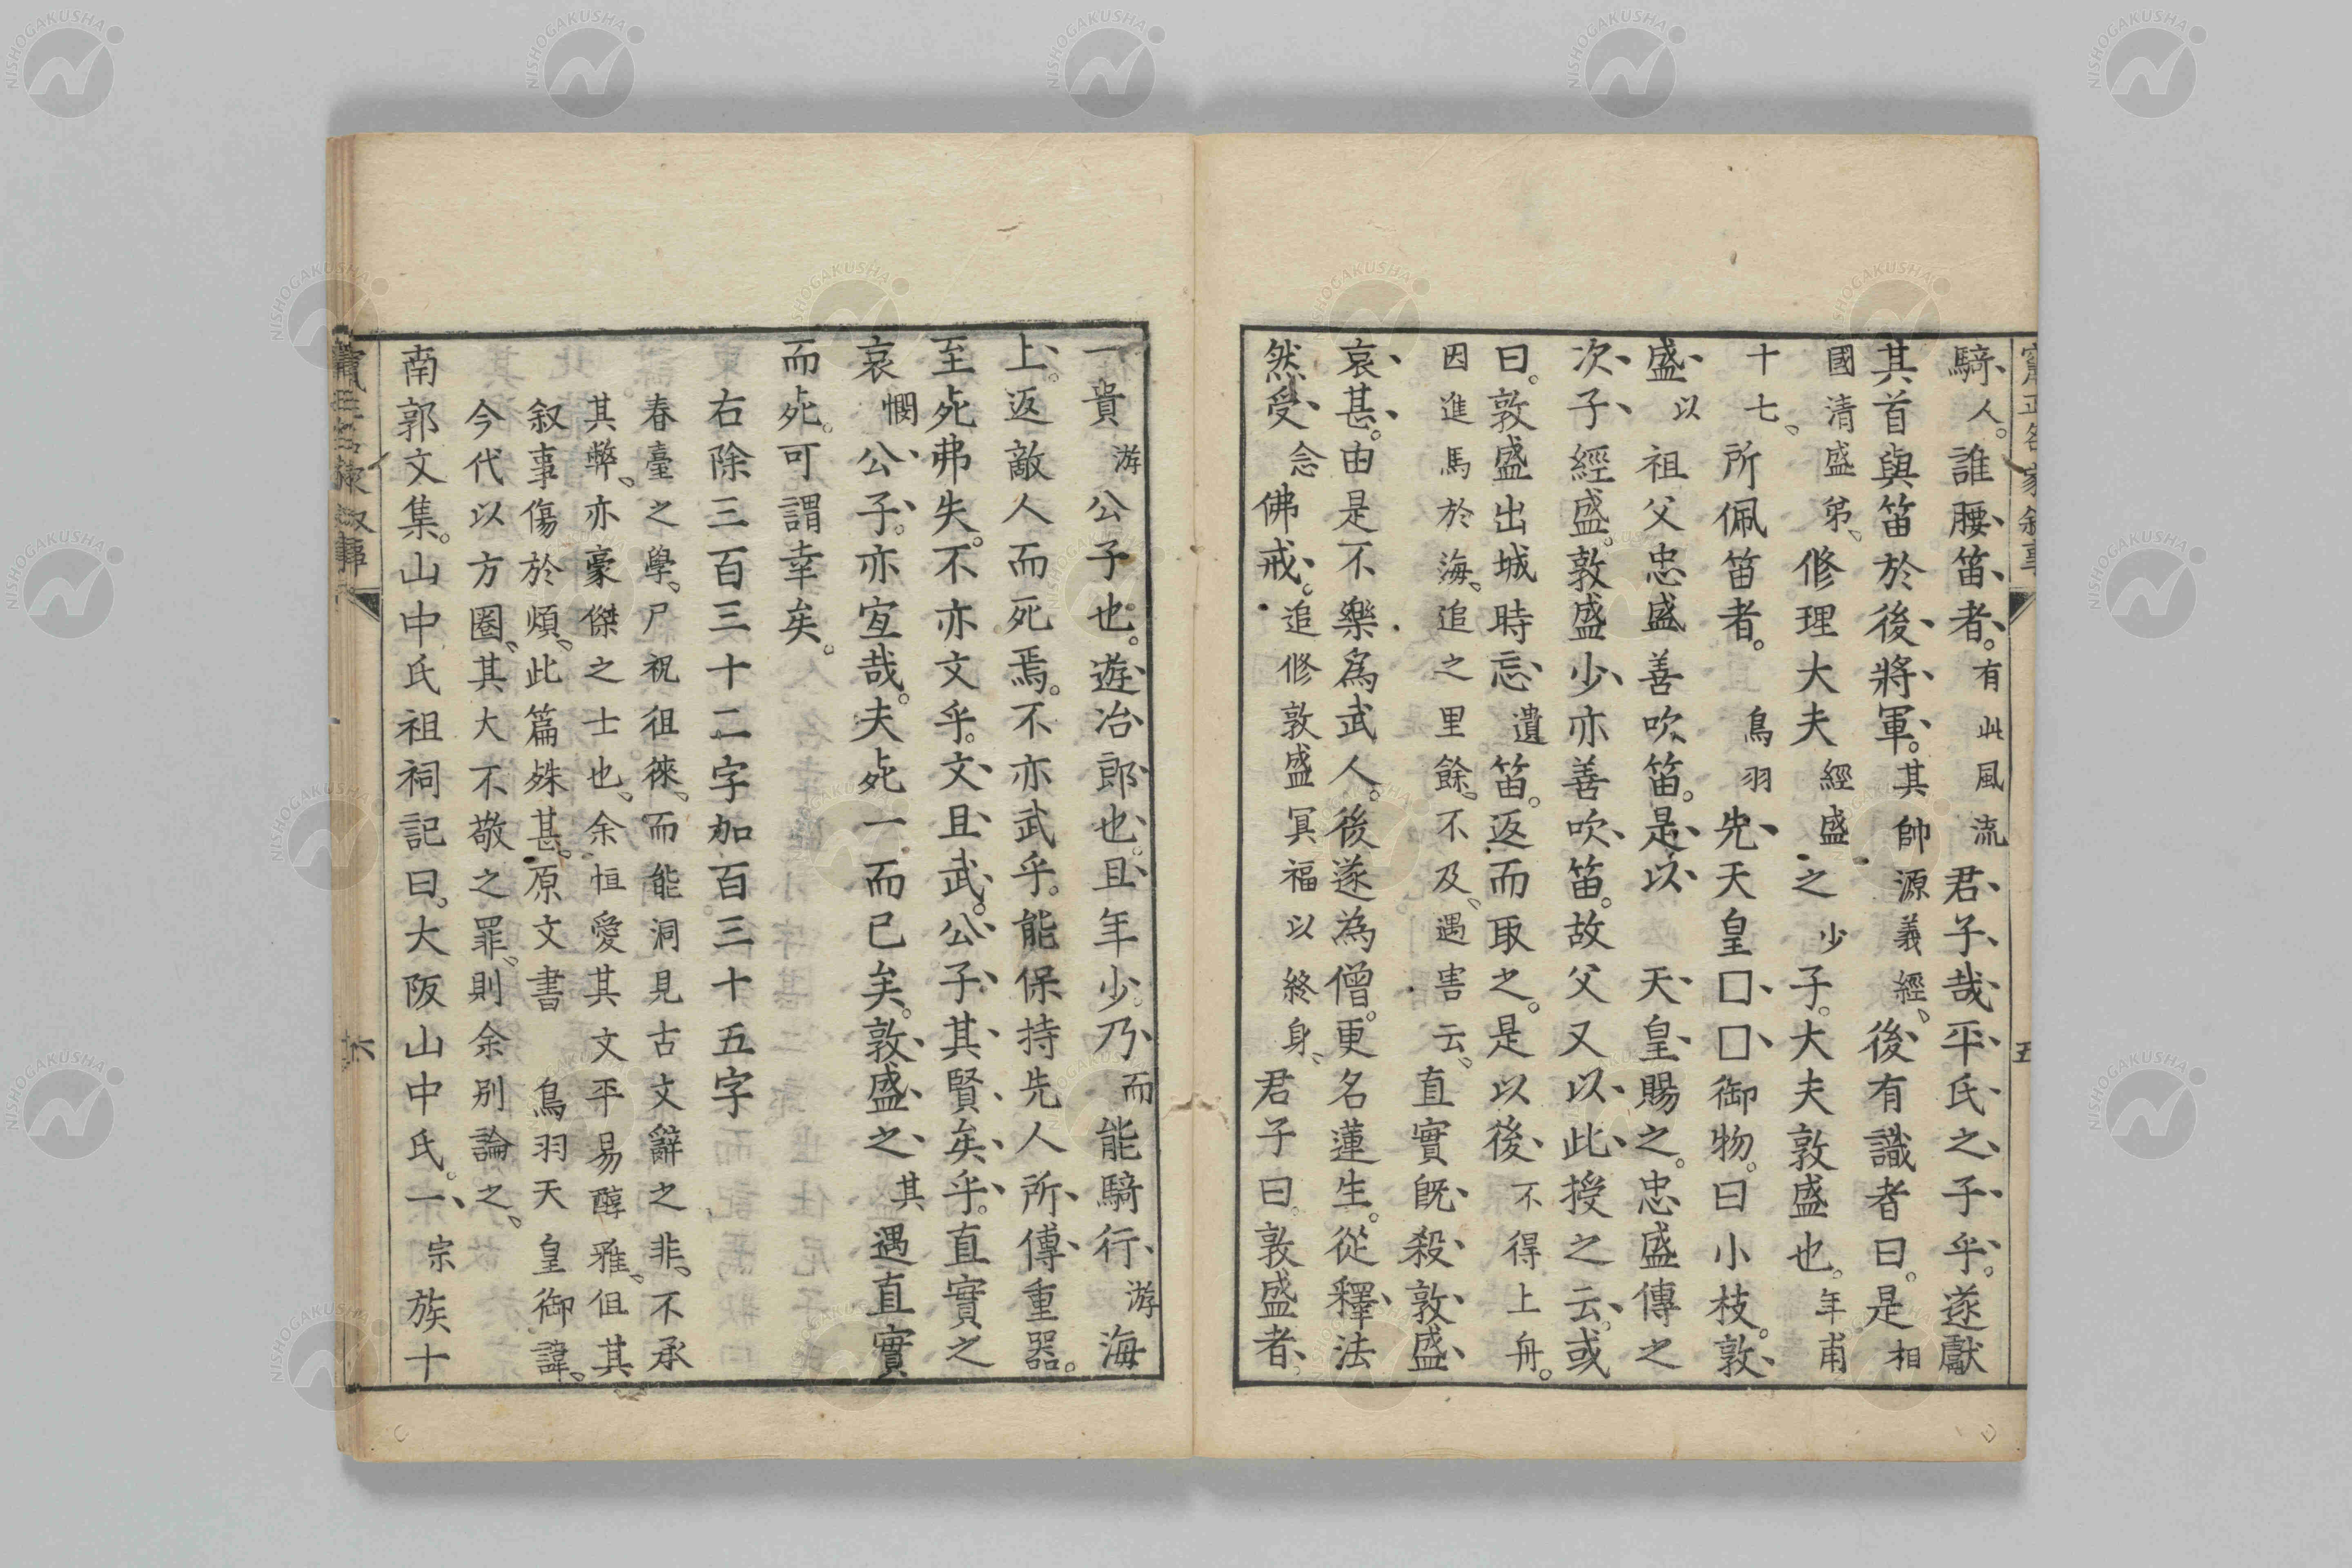 騎人。誰腰笛者。有此風流君子哉平氏之子乎。遂獻
其首與笛於後將軍。其帥源義經、後有識者曰。是相
國清盛弟、修理大夫經盛之少子。大夫敦盛也。年甫
十七、所佩笛者。鳥羽先天皇□□御物。曰小枝。敦
盛以祖父忠盛善吹笛。是以 天皇賜之。忠盛傳之
次子經盛。敦盛少亦善吹笛。故父又以此授之云。或
曰。敦盛出城時忘遺笛。返而取之。是以後不得上舟。
因進馬於海。追之里餘、不及、遇害云、直實既殺敦盛
哀甚。由是不樂為武人。後遂為僧。更名蓮生。從釋法
然受念佛戒。追修敦盛冥福以終身、君子曰。敦盛者
五
一貴游公子也。遊冶郎也。且年少。乃而能騎行游海
上。返敵人而死焉。不亦武乎。能保持先人所傳重器。
至死弗失。不亦文乎。文且武。公子其賢矣乎。直實之
哀憫公子。亦宜哉。夫死一而已矣。敦盛之其遇直實
而死。可謂幸矣。
右除三百三十二字加百三十五字
春臺之學、尸祝徂徠、而能洞見古文辭之非、不承
其弊。亦豪傑之士也、余恒愛其文平易醇雅、但其
叙事傷於煩、此篇殊甚、原文書 鳥羽天皇御諱、
今代以方圈、其大不敬之罪、則余別論之、
南郭文集。山中氏祖祠記曰。大阪山中氏。一宗族十
六